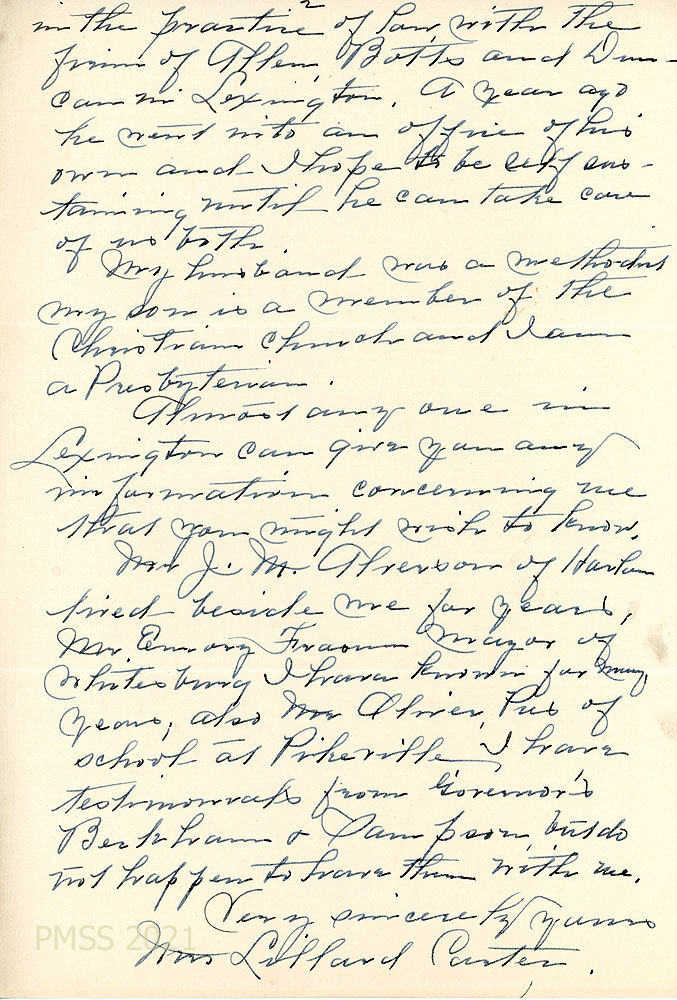 2
in the practice of law with the
firm of Allen, Botts and Dun-
can in Lexington. A year ago
he went into an office of his
own and I hope to be self sus-
taining until he can take care
of us both.
My husband was a methodist
my son is a member of the
Christian church and I am
a Presbyterian.
Almost any one in
Lexington can give you any
information concerning me
that you might wish to know.
Mr J. M. Alverson of Harlan
lived beside me for years,
Mr. Emory Frazier Mayor of
Whitesburg I have known for many
years, also Mr Oliver, Pres of
school at Pikeville, I have
testimonials from Governor's
Beckham & Sampson, but do
not happen to have them with me.
Very sincerely yours
Mrs Lillard Carter.
PMSS 2021